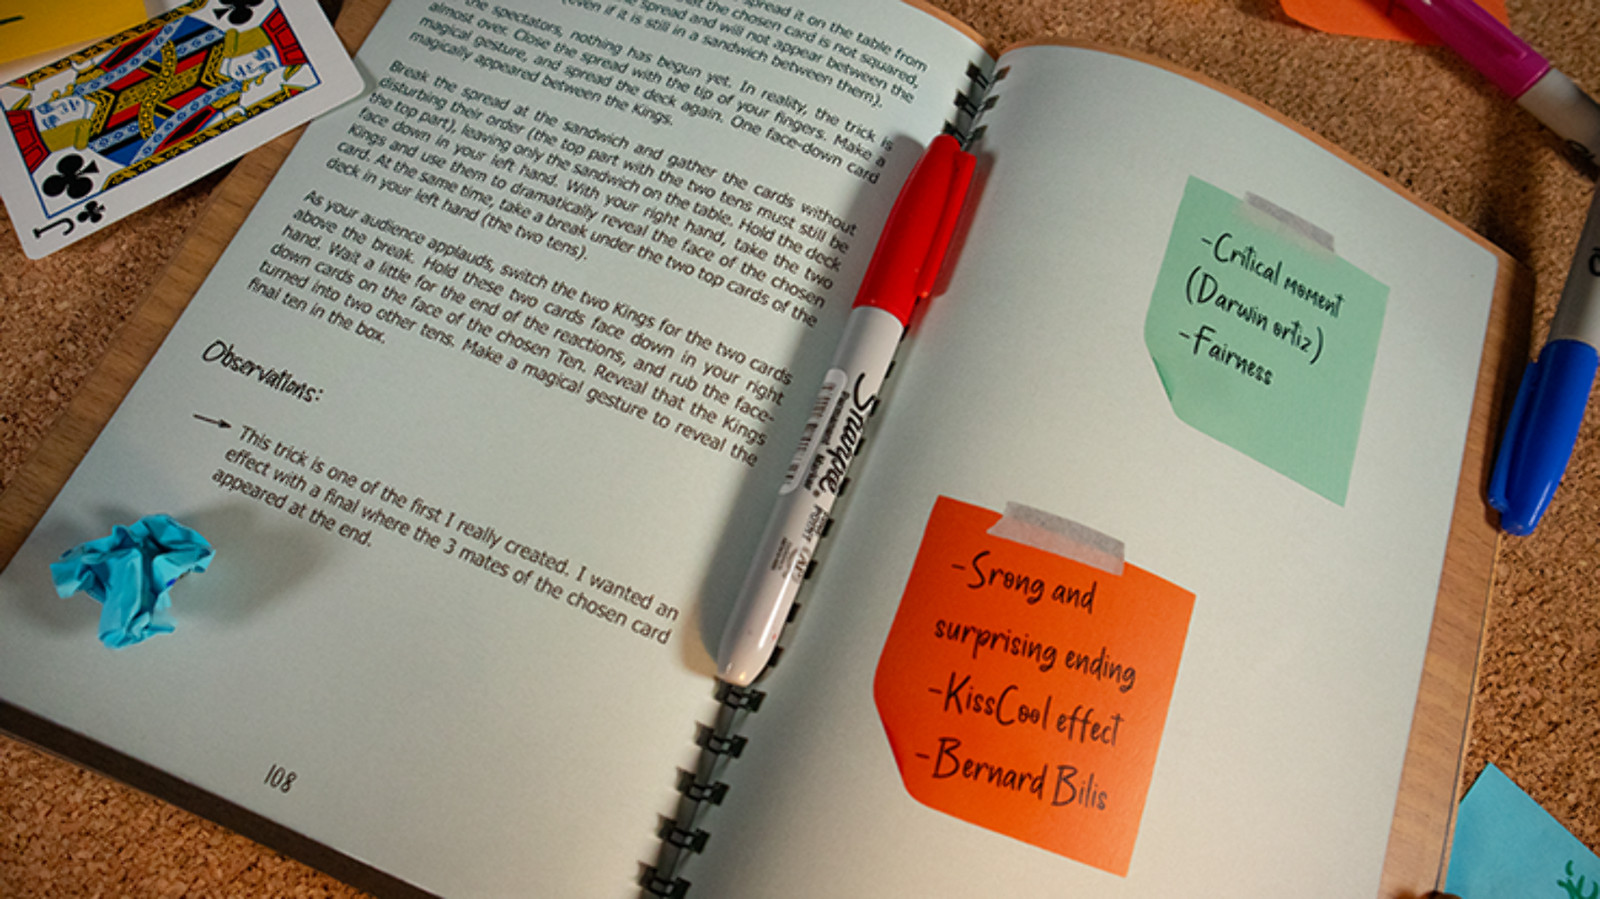 spread it on the table from
that the chosen card is not squared,
the spread and will not appear between the
(even if it is still in a sandwich between them).
the spectators, nothing has begun yet. In reality, the trick is
almost over. Close the spread with the tip of your fingers. Make a
magical gesture, and spread the deck again. One face-down card
magically appeared between the Kings.
Break the spread at the sandwich and gather the cards without
disturbing their order (the top part with the two tens must still be
the top part), leaving only the sandwich on the table. Hold the deck
face down in your left hand. With your right hand, take the two
Kings and use them to dramatically reveal the face of the chosen
card. At the same time, take a break under the two top cards of the
deck in your left hand (the two tens).
As your audience applauds, switch the two Kings for the two cards
above the break. Hold these two cards face down in your right
hand. Wait a little for the end of the reactions, and rub the face-
down cards on the face of the chosen Ten. Reveal that the Kings
turned into two other tens. Make a magical gesture to reveal the
final ten in the box.
Observations:
This trick is one of the first I really created. I wanted an
effect with a final where the 3 mates of the chosen card
appeared at the end.
108
J
Sharpie
Permanent Marker
-Critical moment
(Darwin ortiz)
-Fairness
-Srong and
surprising ending
-KissCool effect
-Bernard Bilis